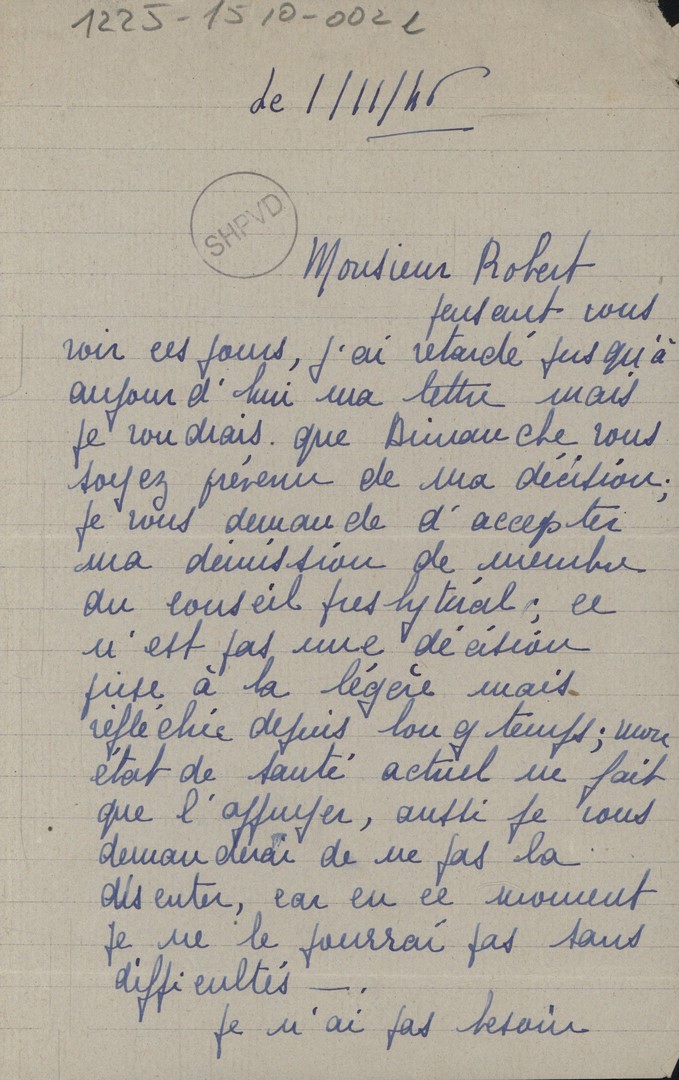 1225-1510-002
Le 1/11/46
SHPVD
Monsieur Robert
pensant vous
voir ces jours, j'ai retardé jusqu'à
aujourd'hui ma lettre mais
je voudrais que Dimanche vous
soyez prévenu de ma décision;
je vous demande d'accepter
ma démission de membre
du conseil presbytéral; ce
n'est pas une décision
prise à la légère mais
réfléchie depuis longtemps; mon
état de santé actuel ne fait
que l'appuyer, aussi je vous
demanderai de ne pas la
discuter, car en ce moment
je ne le pourrai pas sans
difficultés —.
je n'ai pas besoin